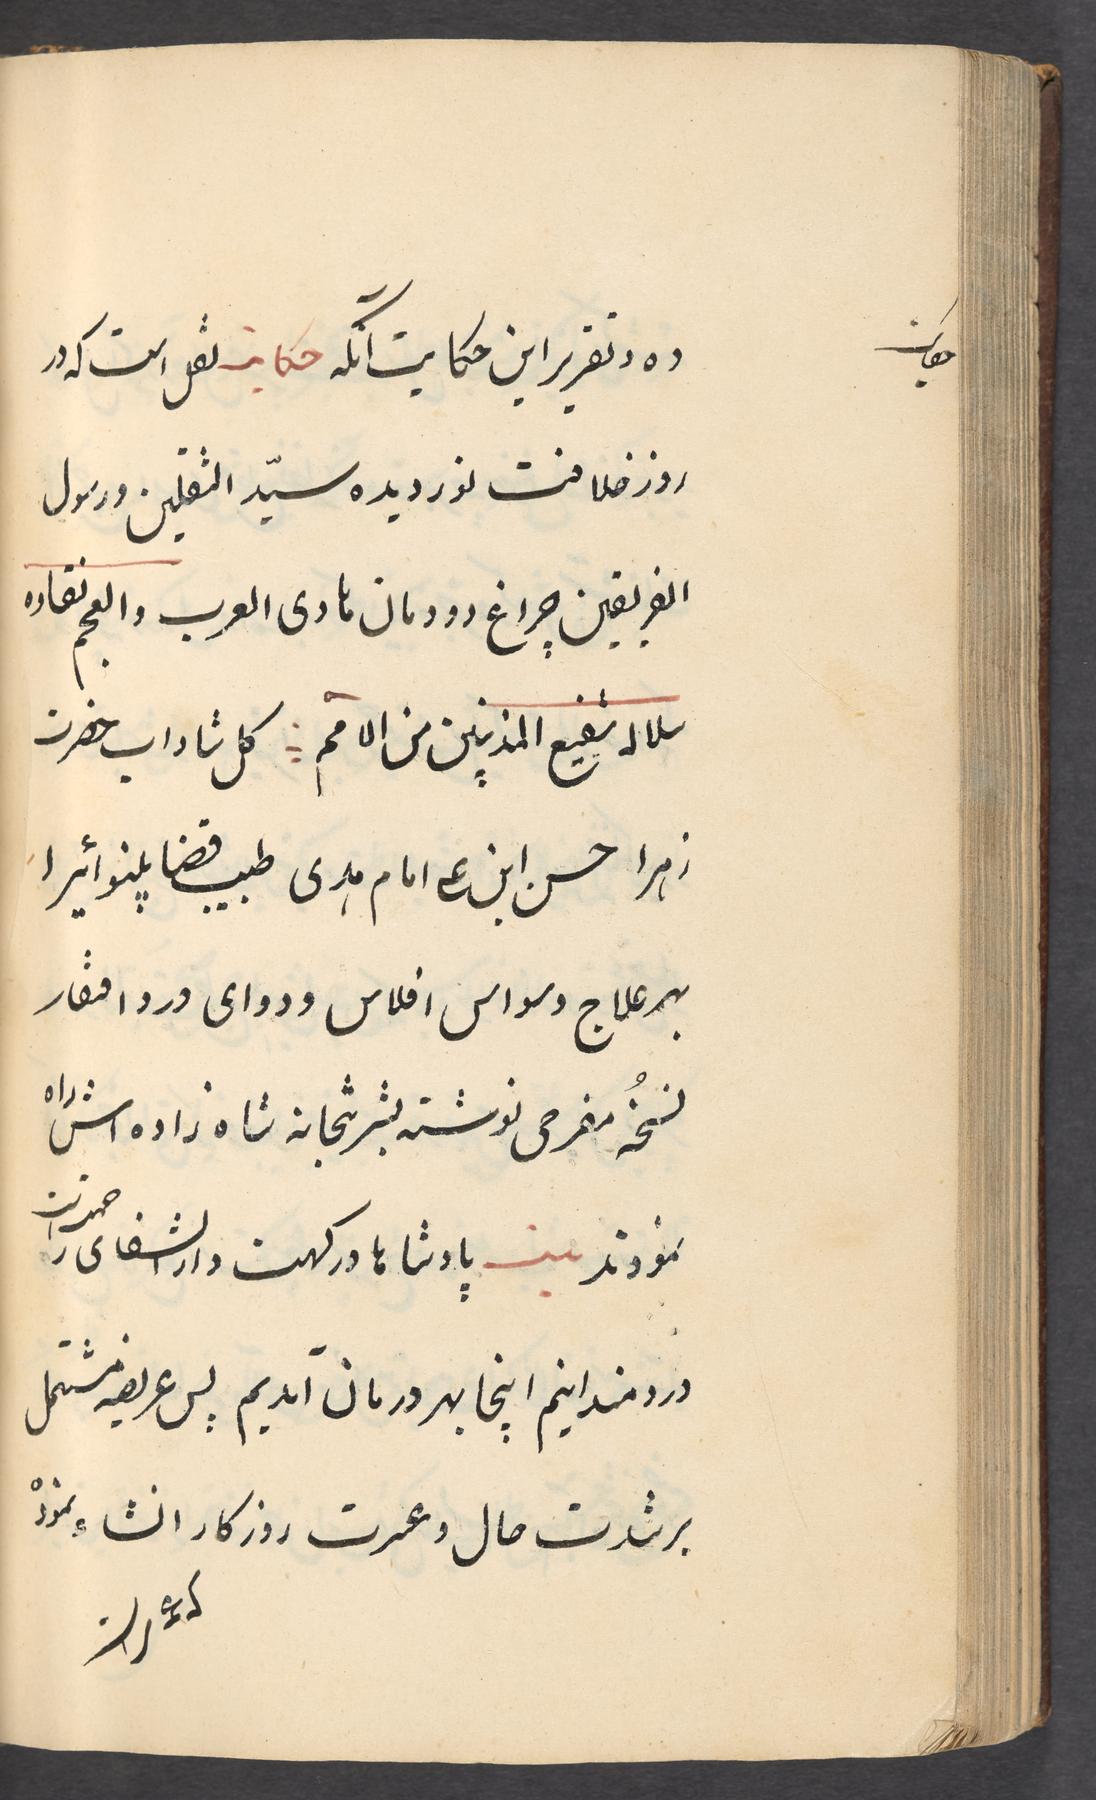 حکایت
ده و تقریر این حکایت آنکه حکایت نقل است که در
روز خلافت نور دیده سیّد الثقلین و رسول
الفریقین چراغ دودمان هادی العرب والعجم نقاوه
سلاله شفیع المذنبین من الامم کل شاداب حضرت
زهرا حسن ابن علی امام هدی طبیب قضا بینوائیرا
بهر علاج وسواس افلاس و دوای درد افتقار
نسخهٔ مفرحی نوشته بشربتخانه شاه زاده اش راه
نمودند بیت پادشاها درکهت دار الشفای رحمت است
دردمندانیم اینجا بهر درمان آمدیم پس عریضه مشتمل
بر شدت حال و عسرت روزکار انشاء نموده